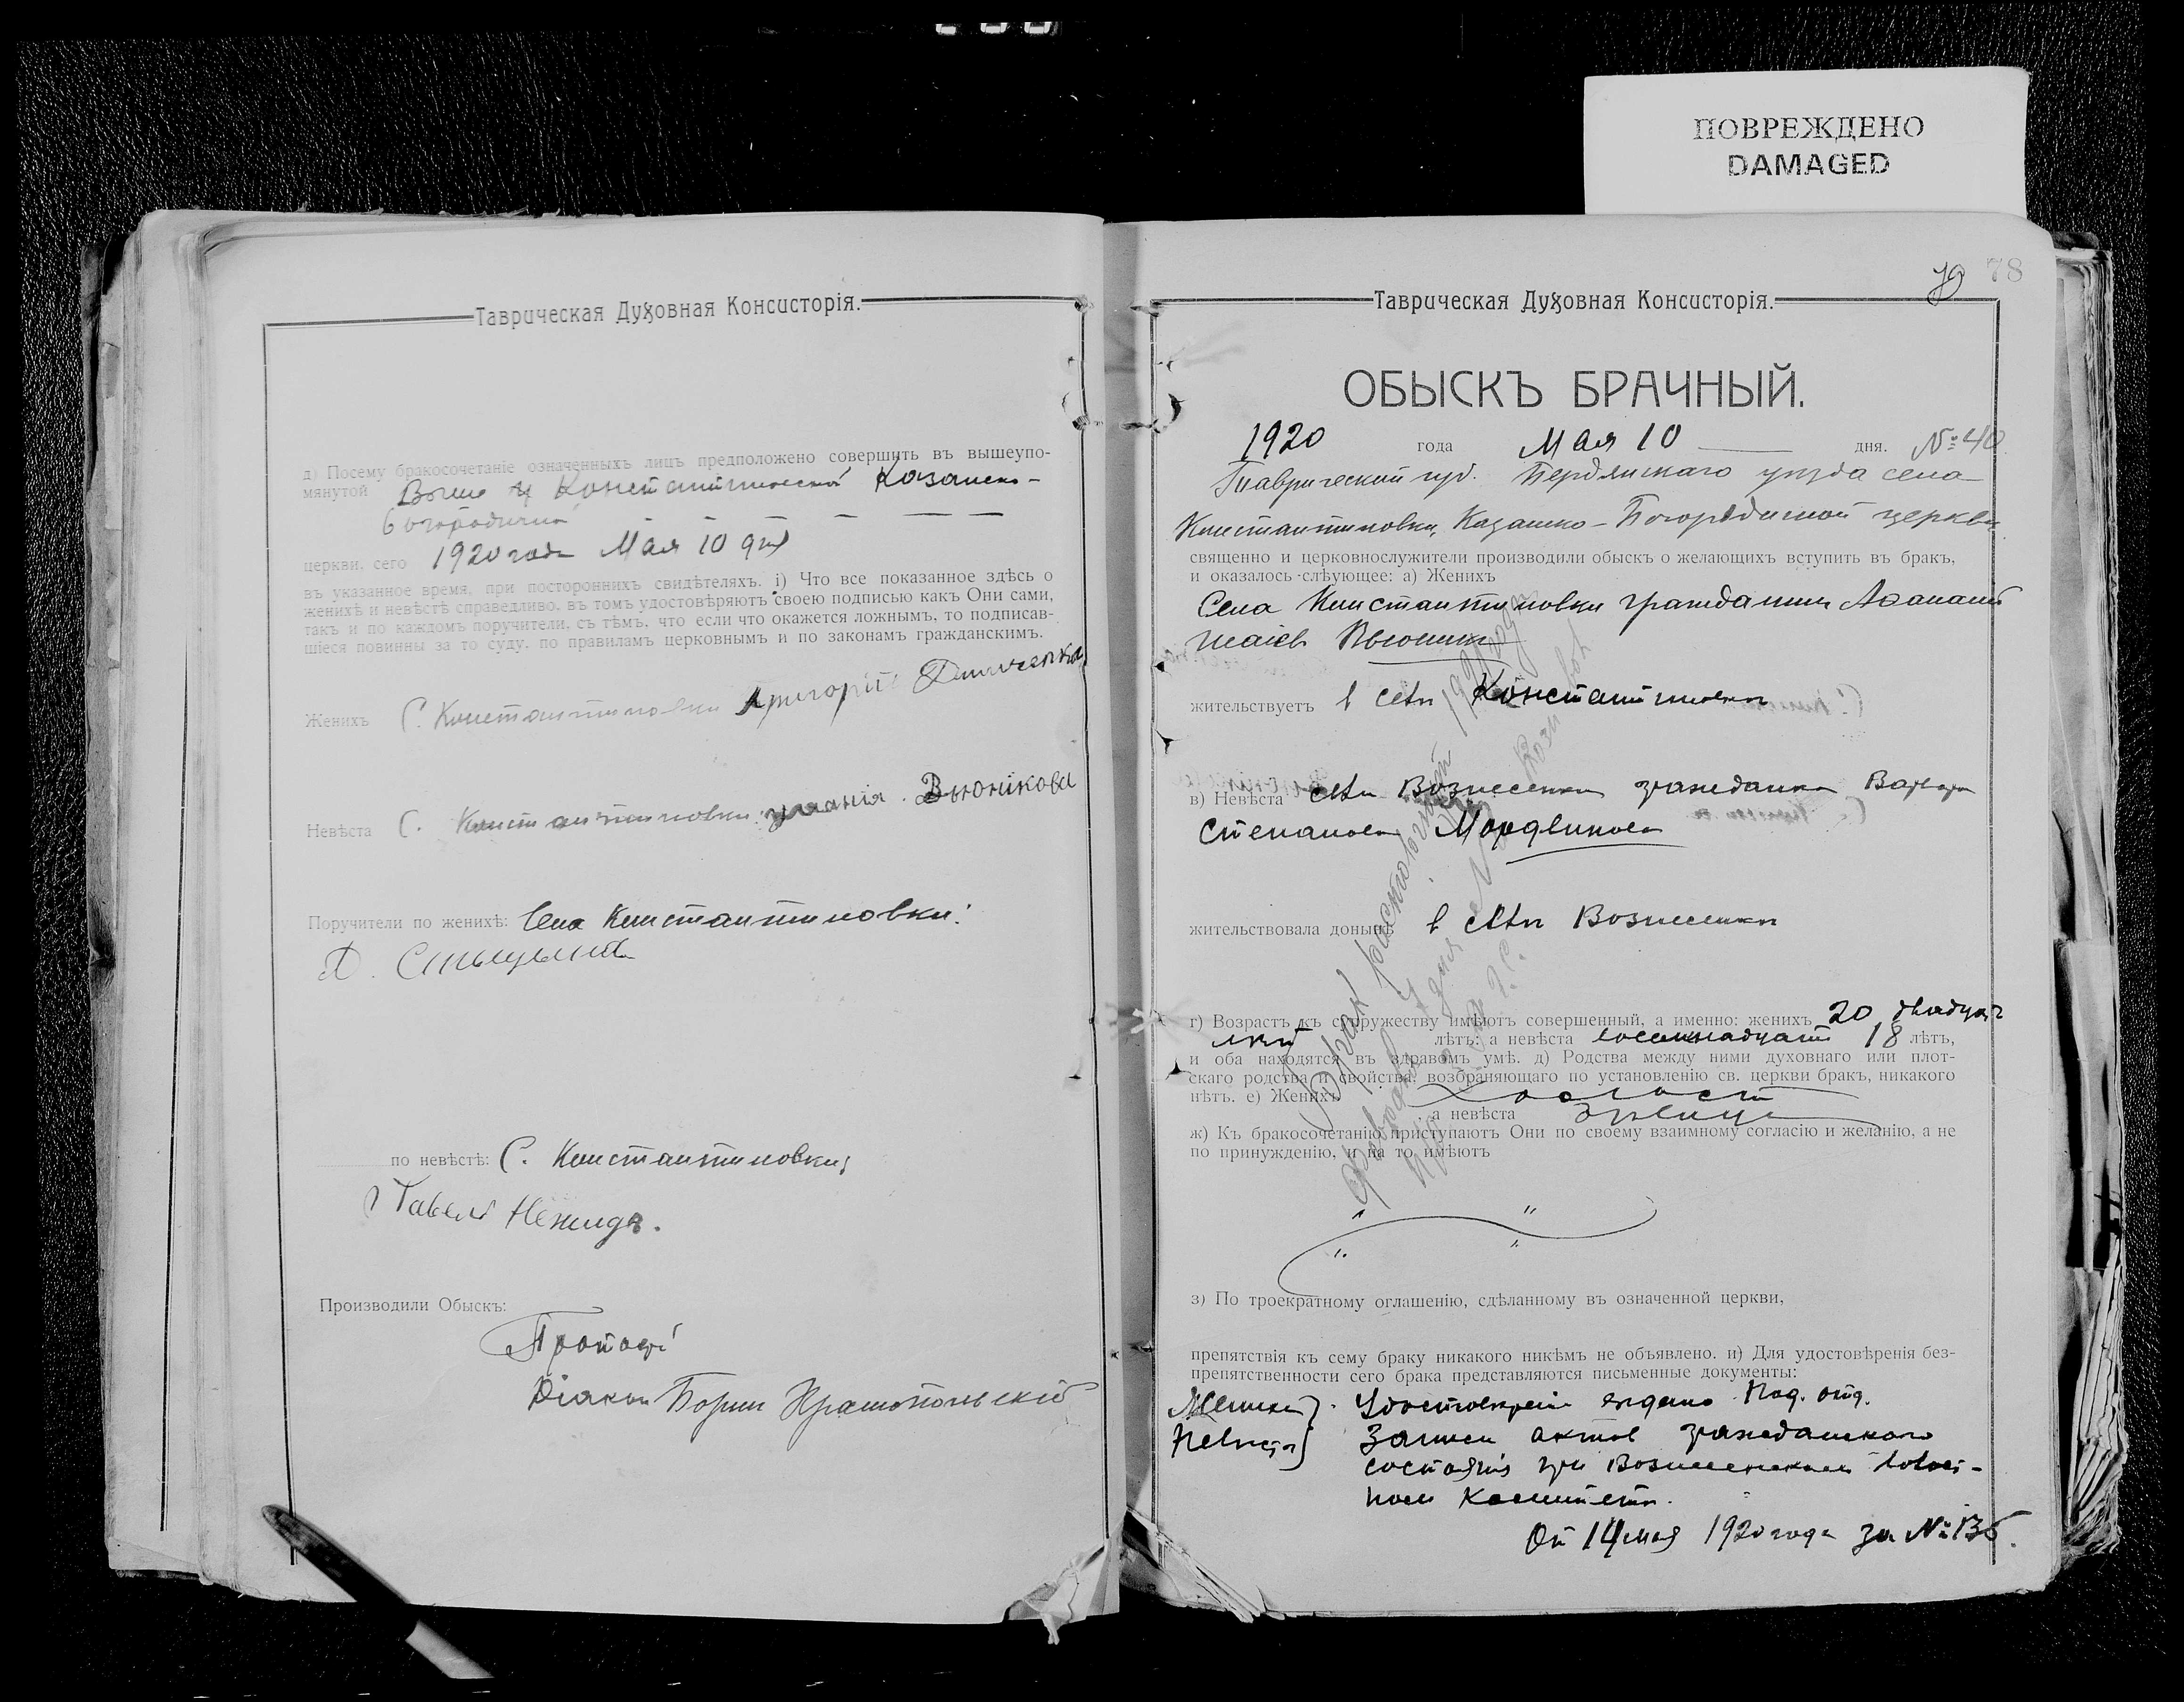 ПОВРЕЖДЕНО
DAMAGED
Таврическая Духовная Консисторія.
д) Посему бракосочетаніе означенныхъ лицъ предположено совершить въ вышеупо-
мянутой Константиновской Казанско-
богородичной
церкви, сего 1920 года Мая 10 дня
въ указанное время, при постороннихъ свидѣтеляхъ. і) Что все показанное здѣсь о
женихѣ и невѣстѣ справедливо, въ томъ удостовѣряютъ своею подписью какъ Они сами,
такъ и по каждомъ поручители, съ тѣмъ, что если что окажется ложнымъ, то подписав-
шіеся повинны за то суду, по правиламъ церковнымъ и по законамъ гражданскимъ.
Женихъ С. Константиновки Григорій
Невѣста С. Константиновки Вьюнікова
Поручители по женихѣ: Села Константиновки:
по невѣстѣ: С. Константиновки,
Павелъ
Производили Обыскъ:
Діакон Борис Краснопольскій
78
Таврическая Духовная Консисторія.
ОБЫСКЪ БРАЧНЫЙ.
1920 года Мая 10 дня. № 40
Таврической губ. Бердянскаго уѣзда села
Константиновки, Казанско-Богородичной церкви
священно и церковнослужители производили обыскъ о желающихъ вступить въ бракъ,
и оказалось слѣующее: а) Женихъ
Села Константиновки гражданин Афанасий
жительствуетъ в селѣ Константиновки
в) Невѣста села Вознесенки гражданка Варвара
Степановна Мордвинова
жительствовала донынѣ в селѣ Вознесенки
г) Возрастъ къ супружеству имѣютъ совершенный, а именно: женихъ 20 двадцать
лѣтъ; а невѣста восемнадцать 18 лѣтъ,
и оба находятся въ здравомъ умѣ. д) Родства между ними духовнаго или плот-
скаго родства и свойства, возбраняющаго по установленію св. церкви бракъ, никакого
нѣтъ. е) Женихъ холост
а невѣста девица
ж) Къ бракосочетанію приступаютъ Они по своему взаимному согласію и желанію, а не
по принужденію, и на то имѣютъ
з) По троекратному оглашенію, сдѣланному въ означенной церкви,
препятствія къ сему браку никакого никѣмъ не объявлено. и) Для удостовѣренія без-
препятственности сего брака представляются письменные документы:
Жениха Удостоверение выдано Под. отд.
Невѣста Записи актов гражданского
состояния при Вознесенском волост-
ном Комитетѣ.
От 14 мая 1920 года за № 136.
Брак расторгнут